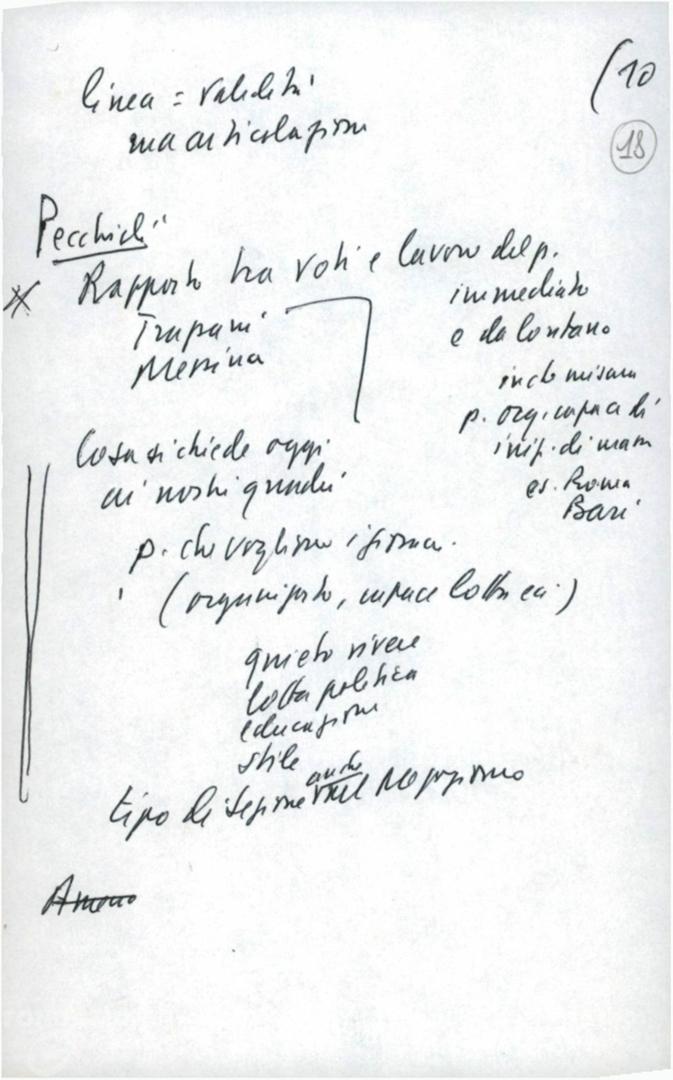 (10
18
linea = validità
ma articolazione
Pecchioli
Rapporto tra voti e lavoro del p.
Trapani
Messina
immediato
e da lontano
in che misura
p. org. capace di
iniz. di massa
es. Roma
Bari
Cosa si chiede oggi
ai nostri quadri
p. che vogliamo
(organizzato, capace lotta
quieto vivere
lotta politica
educazione
stile
tipo di sezione anche nel Mezzogiorno